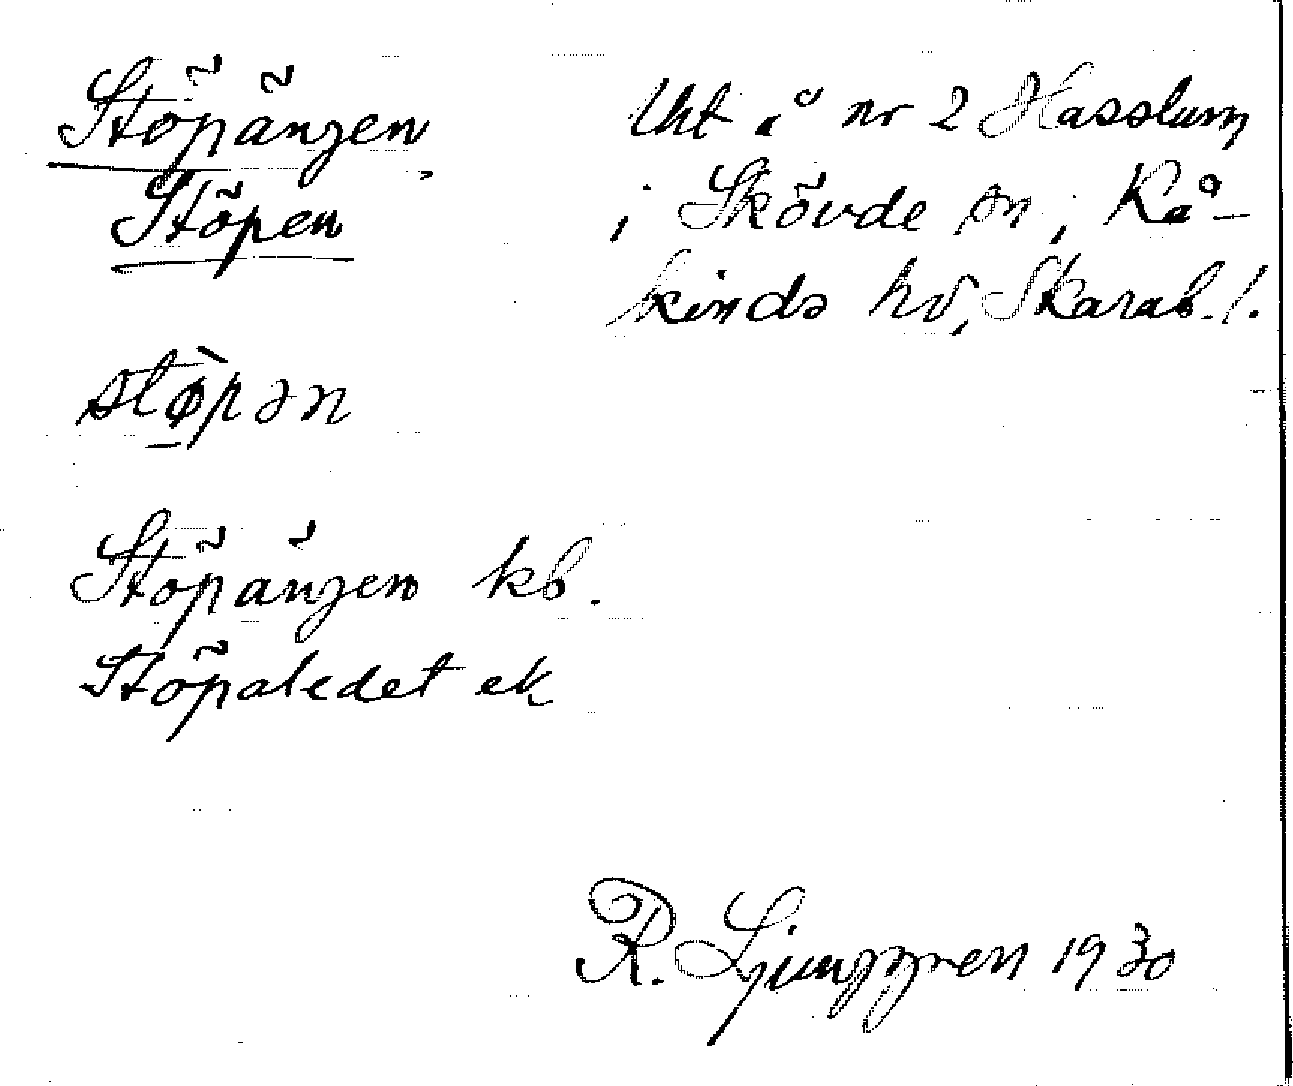 Stöpängen,
Stöpen
stø̀pən
Stöpängen kb.
Stöpaledet ek
Uht. å nr 2 Hasslum
i Skövde sn, Kå-
kinds hd, Skarab. l.
R. Ljunggren 1930